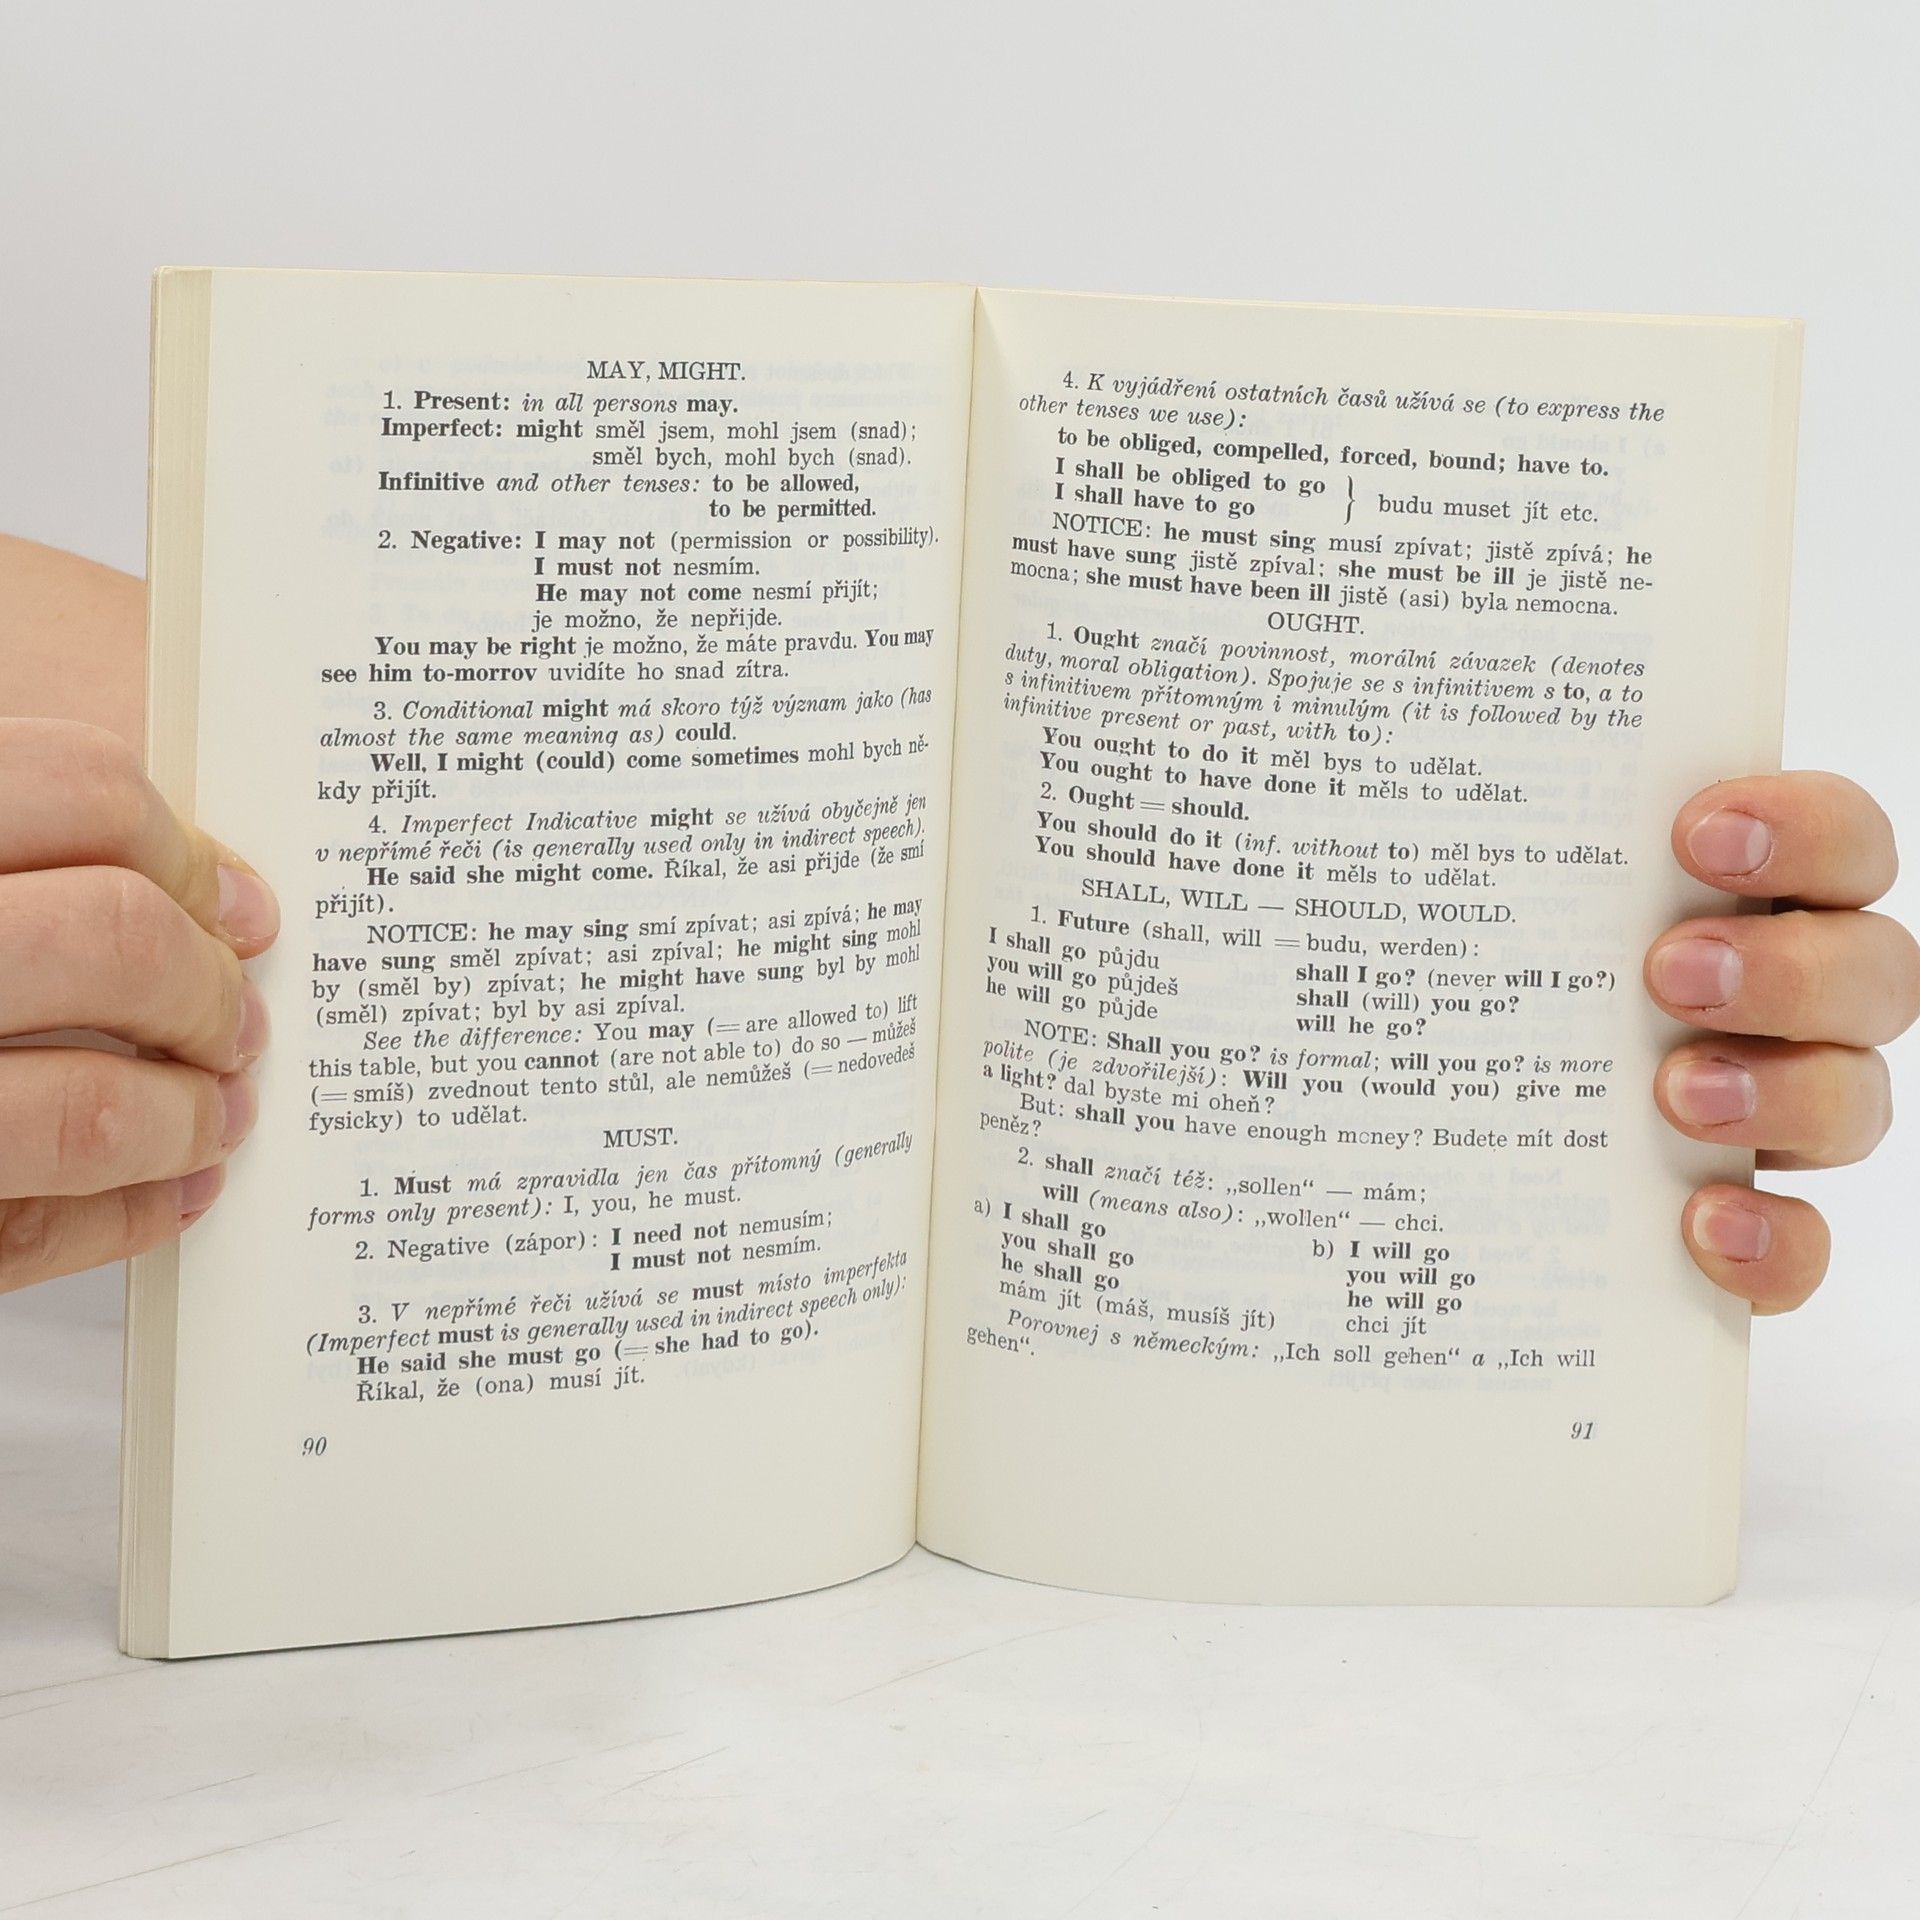 MAY, MIGHT.
1. Present: in all persons may.
Imperfect: might směl jsem, mohl jsem (snad);
směl bych, mohl bych (snad).
Infinitive and other tenses: to be allowed,
to be permitted.
2. Negative: I may not (permission or possibility).
I must not nesmím.
He may not come nesmí přijít;
je možno, že nepřijde.
You may be right je možno, že máte pravdu. You may
see him to-morrov uvidíte ho snad zítra.
3. Conditional might má skoro týž význam jako (has
almost the same meaning as) could.
Well, I might (could) come sometimes mohl bych ně-
kdy přijít.
4. Imperfect Indicative might se užívá obyčejně jen
v nepřímé řeči (is generally used only in indirect speech).
He said she might come. Říkal, že asi přijde (že smí
přijít).
NOTICE: he may sing smí zpívat; asi zpívá; he may
have sung směl zpívat; asi zpíval; he might sing mohl
by (směl by) zpívat; he might have sung byl by mohl
(směl) zpívat; byl by asi zpíval.
See the difference: You may (= are allowed to) lift
this table, but you cannot (are not able to) do so — můžeš
(= smíš) zvednout tento stůl, ale nemůžeš (= nedovedeš
fysicky) to udělat.
MUST.
1. Must má zpravidla jen čas přítomný (generally
forms only present): I, you, he must.
2. Negative (zápor): I need not nemusím;
I must not nesmím.
3. V nepřímé řeči užívá se must místo imperfekta
(Imperfect must is generally used in indirect speech only):
He said she must go (= she had to go).
Říkal, že (ona) musí jít.
90
4. K vyjádření ostatních časů užívá se (to express the
other tenses we use):
to be obliged, compelled, forced, bound; have to.
I shall be obliged to go
I shall have to go } budu muset jít etc.
NOTICE: he must sing musí zpívat; jistě zpívá; he
must have sung jistě zpíval; she must be ill je jistě ne-
mocna; she must have been ill jistě (asi) byla nemocna.
OUGHT.
1. Ought značí povinnost, morální závazek (denotes
duty, moral obligation). Spojuje se s infinitivem s to, a to
s infinitivem přítomným i minulým (it is followed by the
infinitive present or past, with to):
You ought to do it měl bys to udělat.
You ought to have done it měls to udělat.
2. Ought = should.
You should do it (inf. without to) měl bys to udělat.
You should have done it měls to udělat.
SHALL, WILL — SHOULD, WOULD.
1. Future (shall, will = budu, werden):
I shall go půjdu shall I go? (never will I go?)
you will go půjdeš shall (will) you go?
he will go půjde will he go?
NOTE: Shall you go? is formal; will you go? is more
polite (je zdvořilejší): Will you (would you) give me
a light? dal byste mi oheň?
But: shall you have enough money? Budete mít dost
peněz?
2. shall značí též: „sollen“ — mám;
will (means also): „wollen“ — chci.
a) I shall go b) I will go
you shall go you will go
he shall go he will go
mám jít (máš, musíš jít) chci jít
Porovnej s německým: „Ich soll gehen“ a „Ich will
gehen“.
91